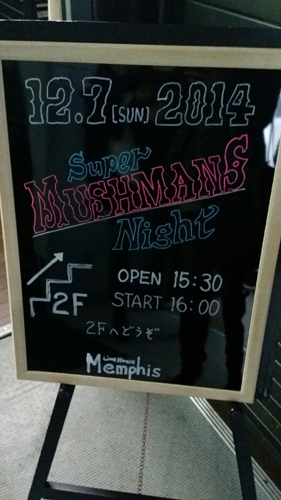 12.7 [SUN] 2014
Super
MUSHMANS
Night
2F
OPEN 15:30
START 16:00
2Fへどうぞ
Live House
Memphis